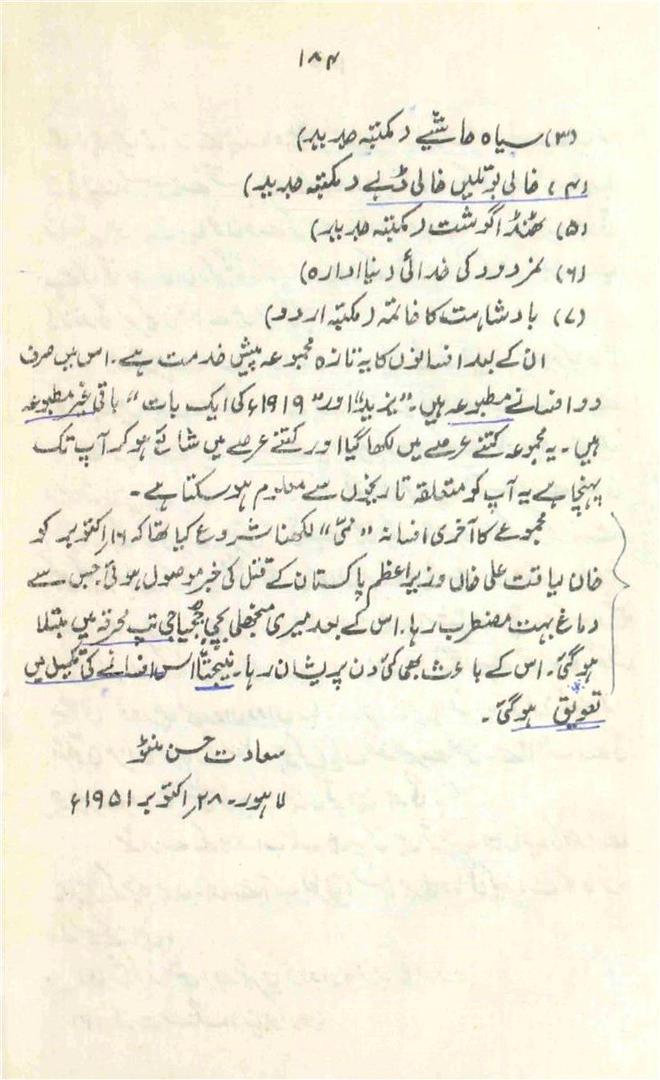 ۱۸۴
(۳) سیاہ حاشیے (مکتبہ جدید)
(۴) خالی بوتلیں خالی ڈبے (مکتبہ جدید)
(۵) ٹھنڈا گوشت (مکتبہ جدید)
(۶) نمرود کی خدائی (نیا ادارہ)
(۷) بادشاہت کا خاتمہ (مکتبہ اردو)
ان کے بعد افسانوں کا یہ تازہ مجموعہ پیش خدمت ہے۔ اس میں صرف
دو افسانے مطبوعہ ہیں۔ "یزید" اور "۱۹۱۹ء کی ایک بات" باقی غیر مطبوعہ
ہیں۔ یہ مجموعہ کتنے عرصے میں لکھا گیا اور کتنے عرصے میں شائع ہو کر آپ تک
پہنچا ہے یہ آپ کو متعلقہ تاریخوں سے معلوم ہو سکتا ہے۔
مجموعے کا آخری افسانہ "ممی" لکھنا شروع کیا تھا کہ ۱۶ اکتوبر کو
خان لیاقت علی خاں وزیر اعظم پاکستان کے قتل کی خبر موصول ہوئی جس سے
دماغ بہت مضطرب رہا۔ اس کے بعد میری منجھلی بچی تپ محرقہ میں مبتلا
ہو گئی۔ اس کے باعث بھی کئی دن پریشان رہا۔ نتیجتاً اس افسانے کی تکمیل میں
تعویق ہو گئی۔
سعادت حسن منٹو
لاہور۔ ۲۸ اکتوبر ۱۹۵۱ء